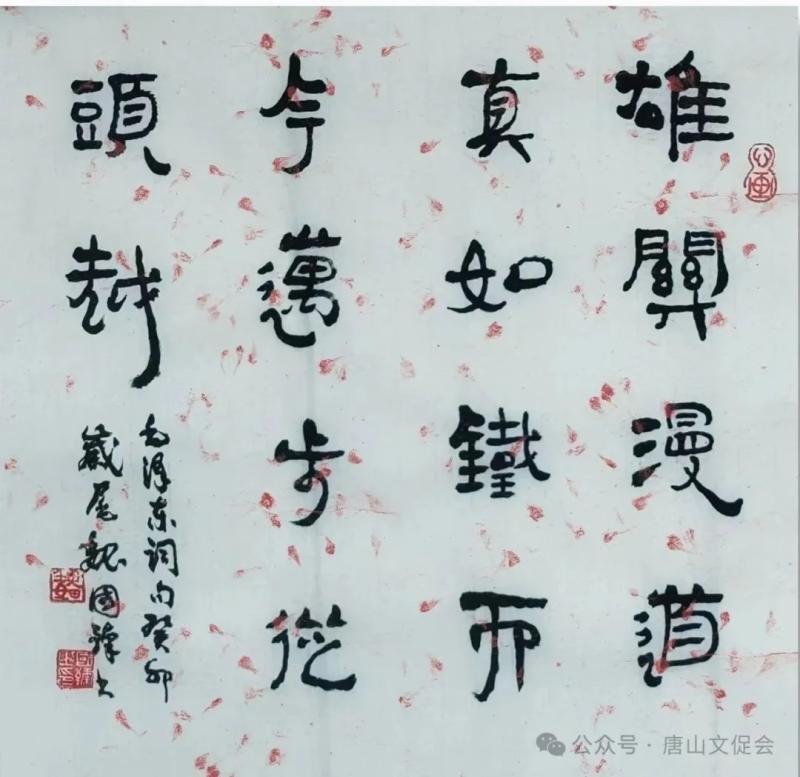 雄關漫道
真如鐵而
今邁步從
頭越
毛澤东詞句癸卯
歲尾魏國书
公众号 · 唐山文促会